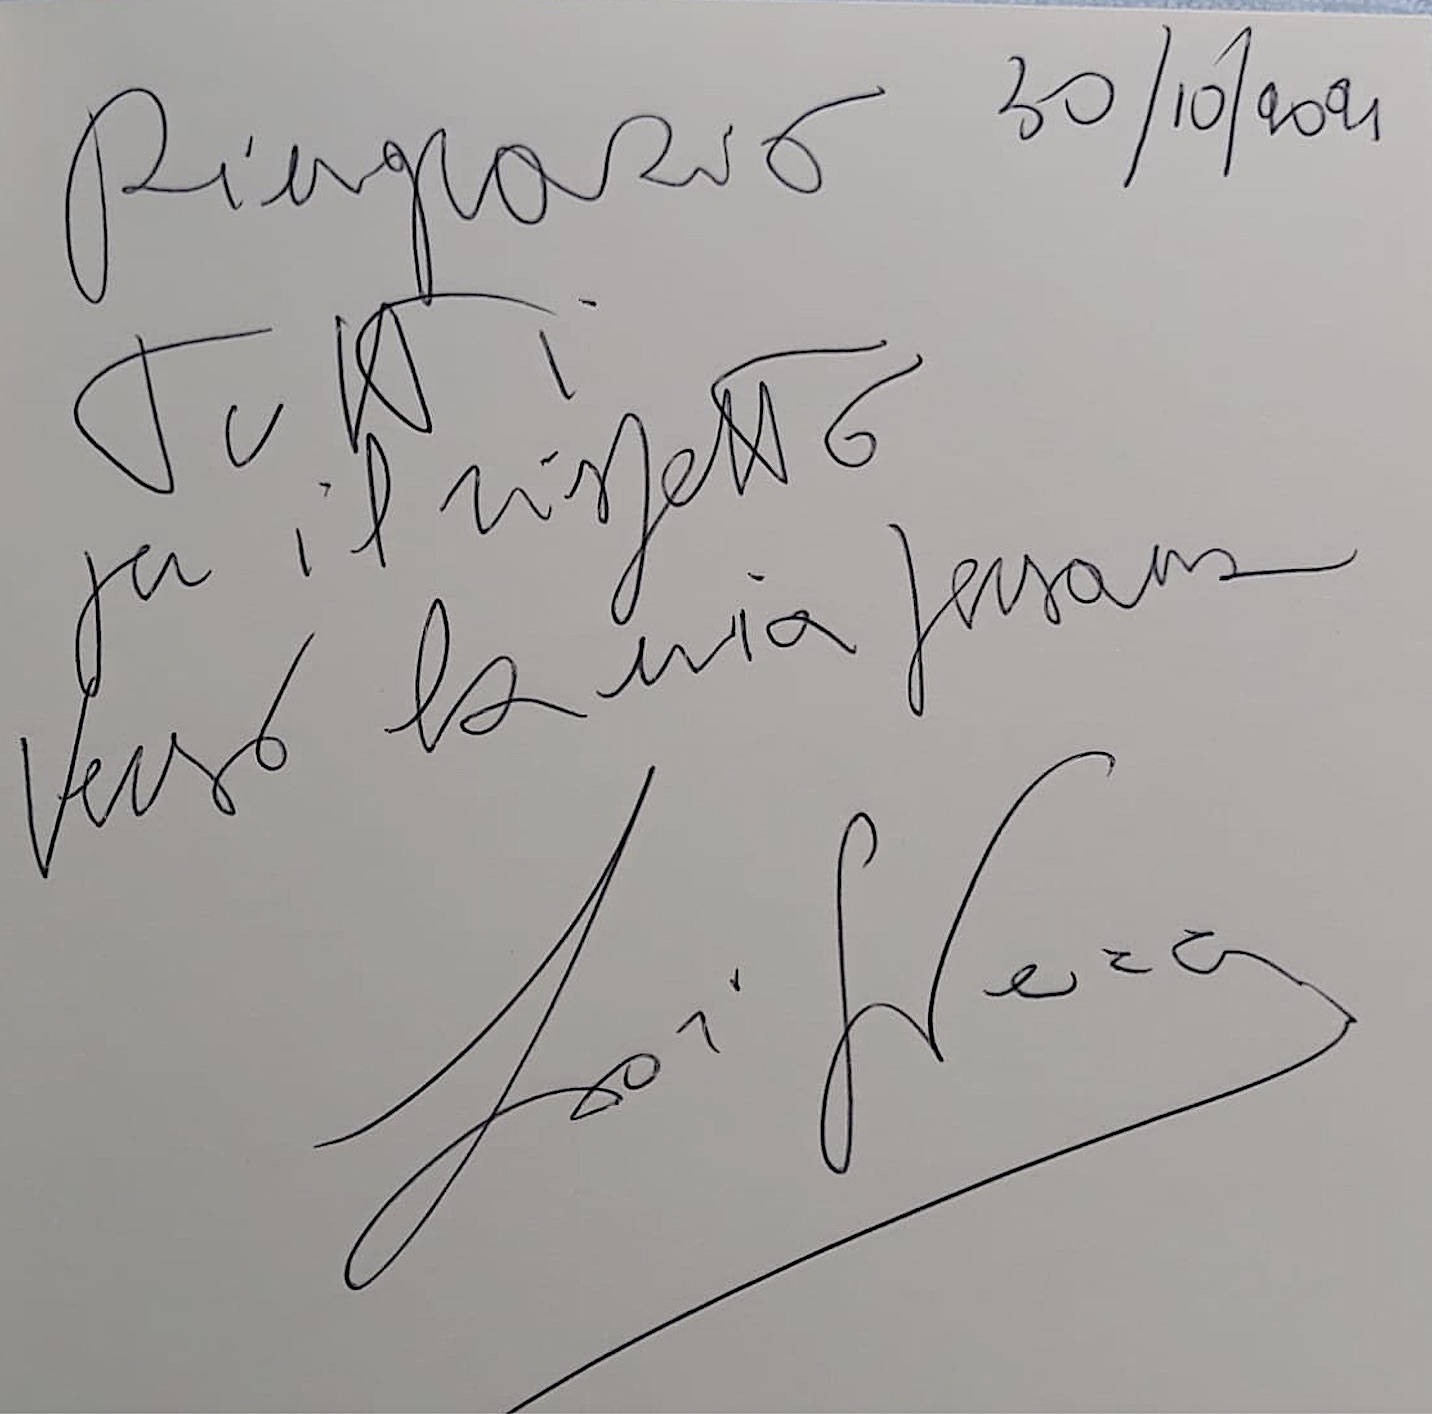 Ringrazio 30/10/2021
Tutti
per il rispetto
verso la mia persona